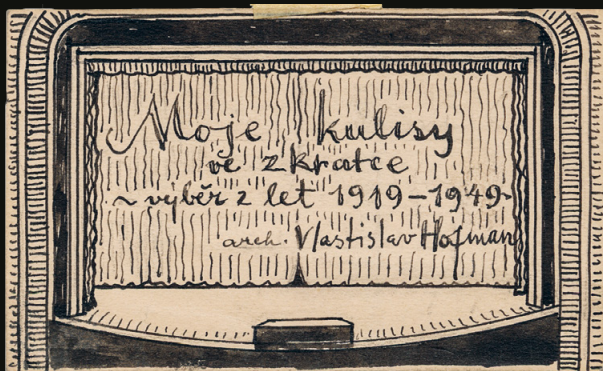 Moje kulisy
ve zkratce
~ výběr z let 1919-1949~
arch. Vlastislav Hofman